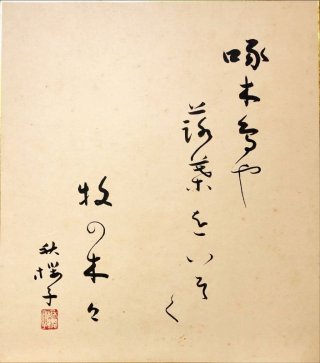 啄木鳥や
落葉をいそく
牧の木々
秋櫻子